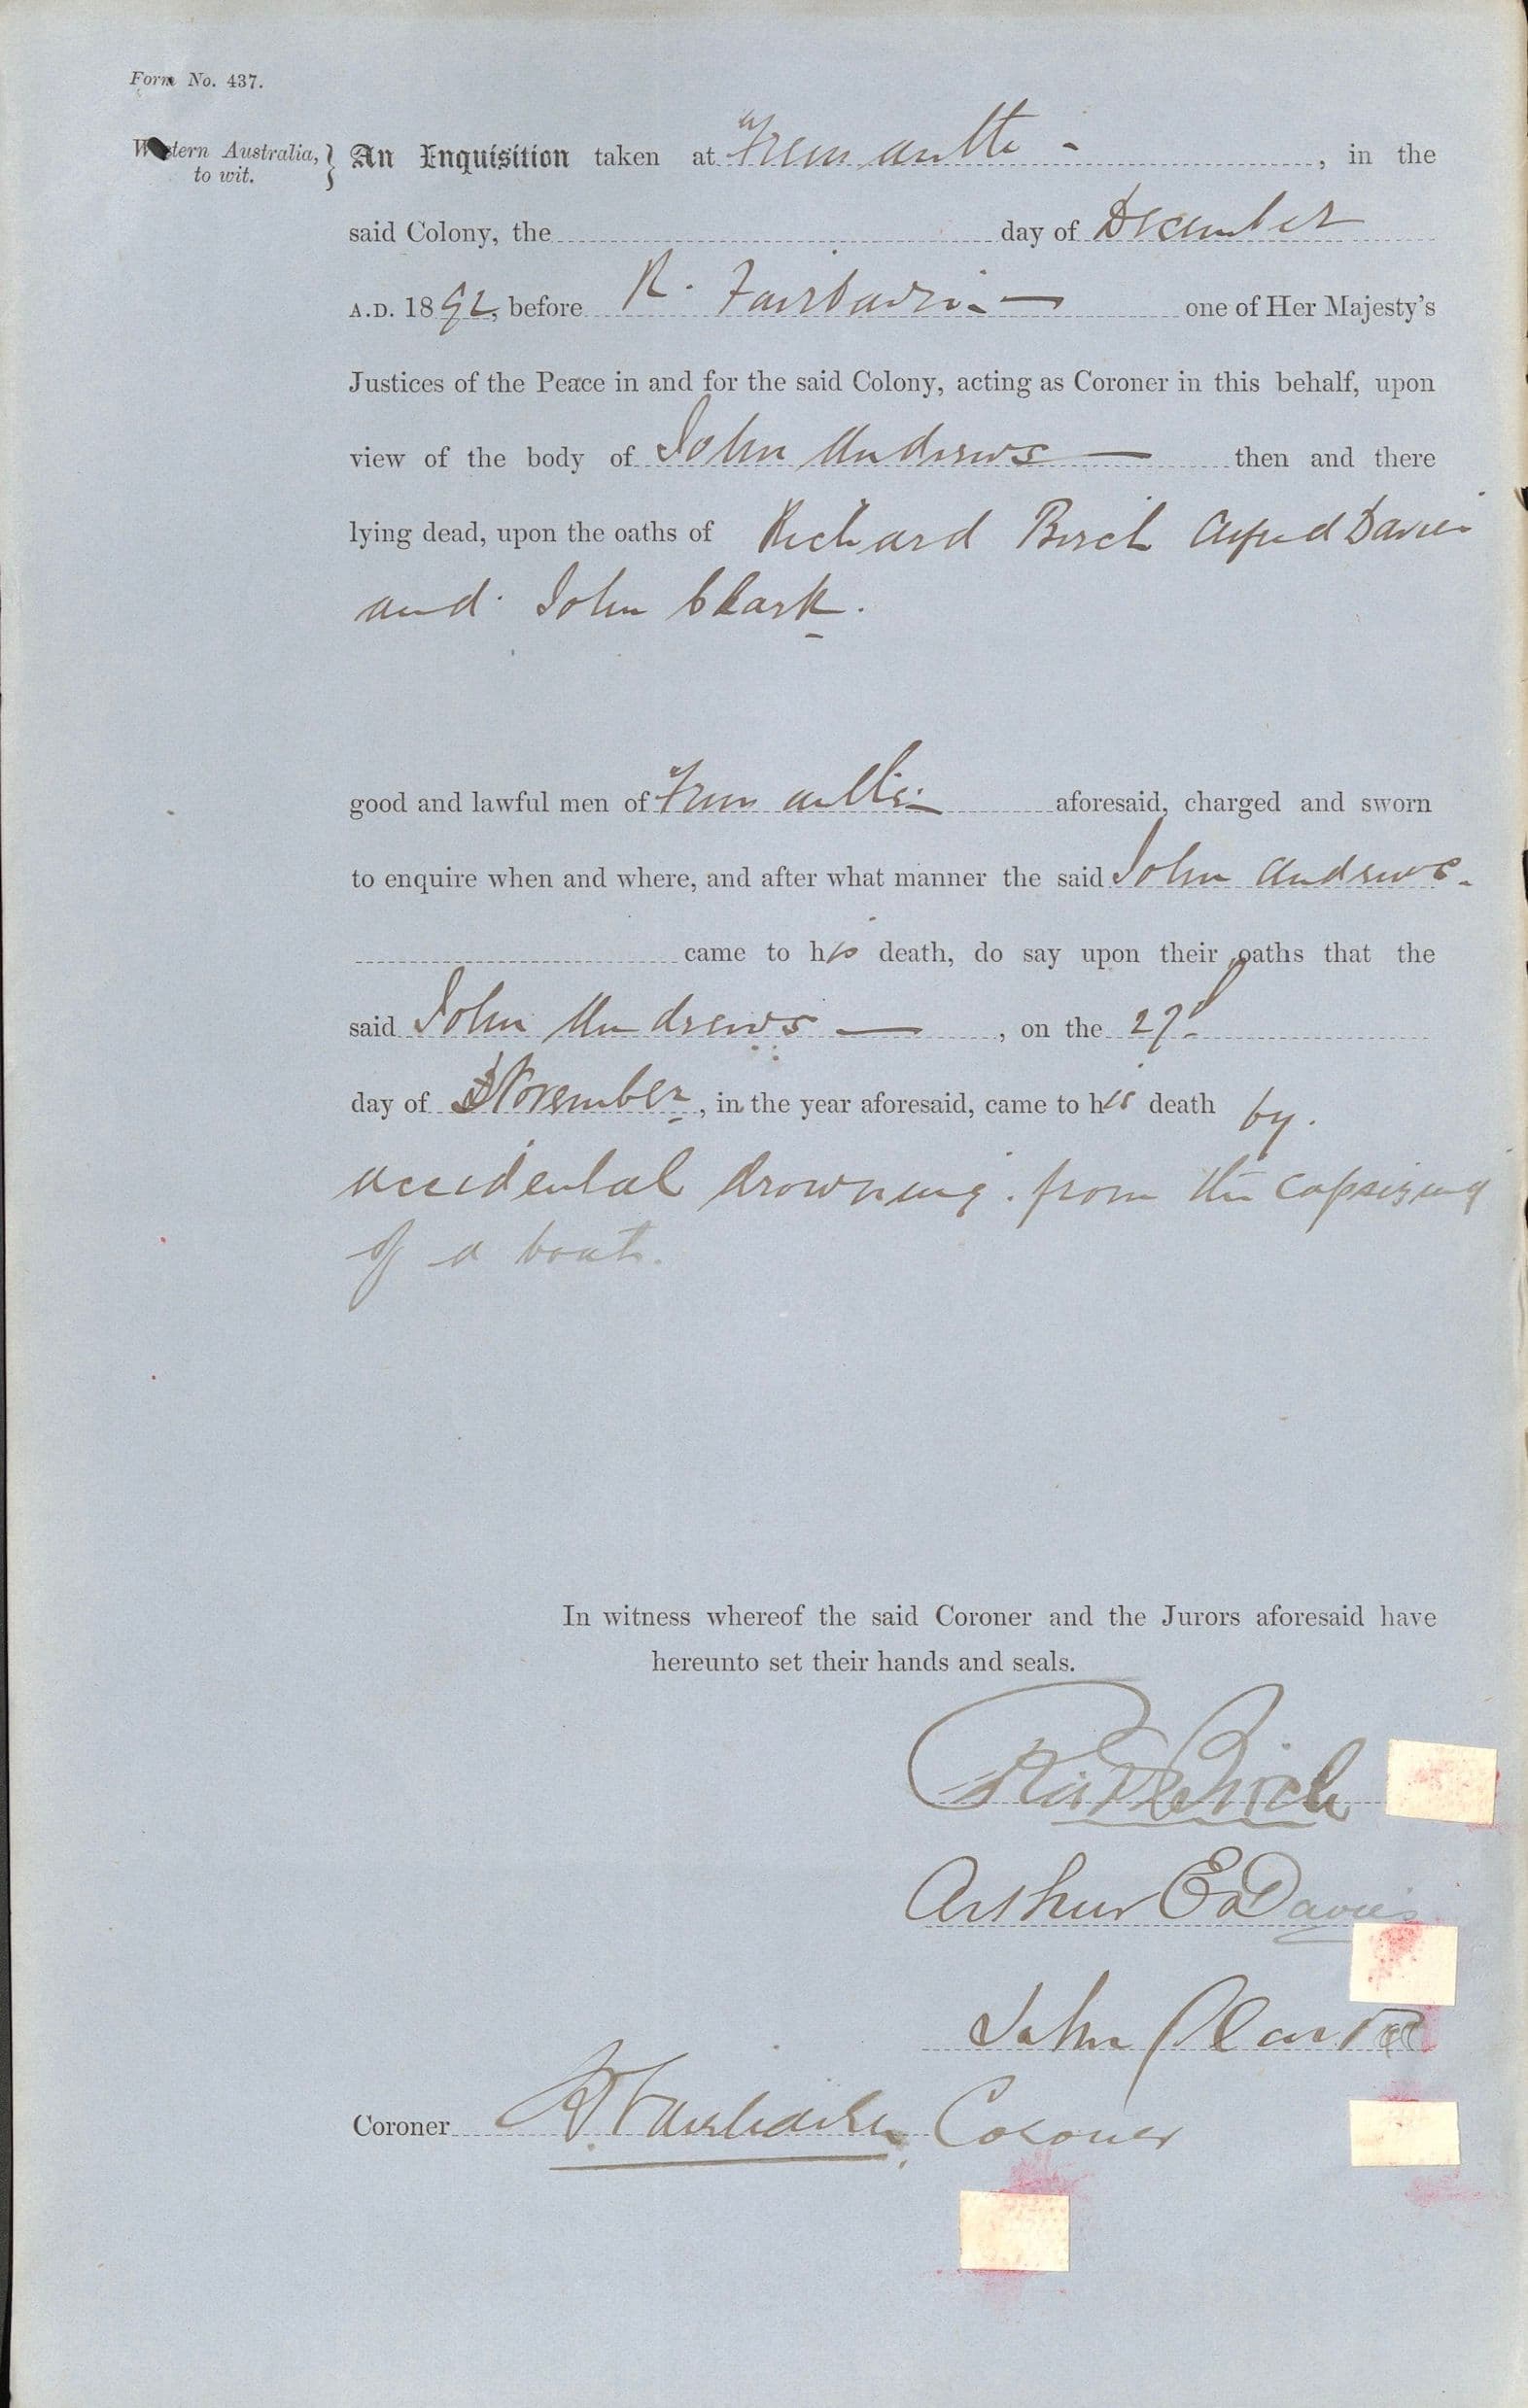 Form No. 437.
Western Australia, to wit. } An Inquisition taken at Fremantle - , in the
said Colony, the day of December
A.D. 1892, before R. Fairbairn — one of Her Majesty's
Justices of the Peace in and for the said Colony, acting as Coroner in this behalf, upon
view of the body of John Andrews — then and there
lying dead, upon the oaths of Richard Birch Alfred Davies
and John Clark.
good and lawful men of Fremantle aforesaid, charged and sworn
to enquire when and where, and after what manner the said John Andrews
came to his death, do say upon their oaths that the
said John Andrews — , on the 27th
day of November, in the year aforesaid, came to his death by
accidental drowning. from the capsizing
of a boat.
In witness whereof the said Coroner and the Jurors aforesaid have
hereunto set their hands and seals.
Birch
Arthur E Davies
John Clark
Coroner R Fairbairn Coroner